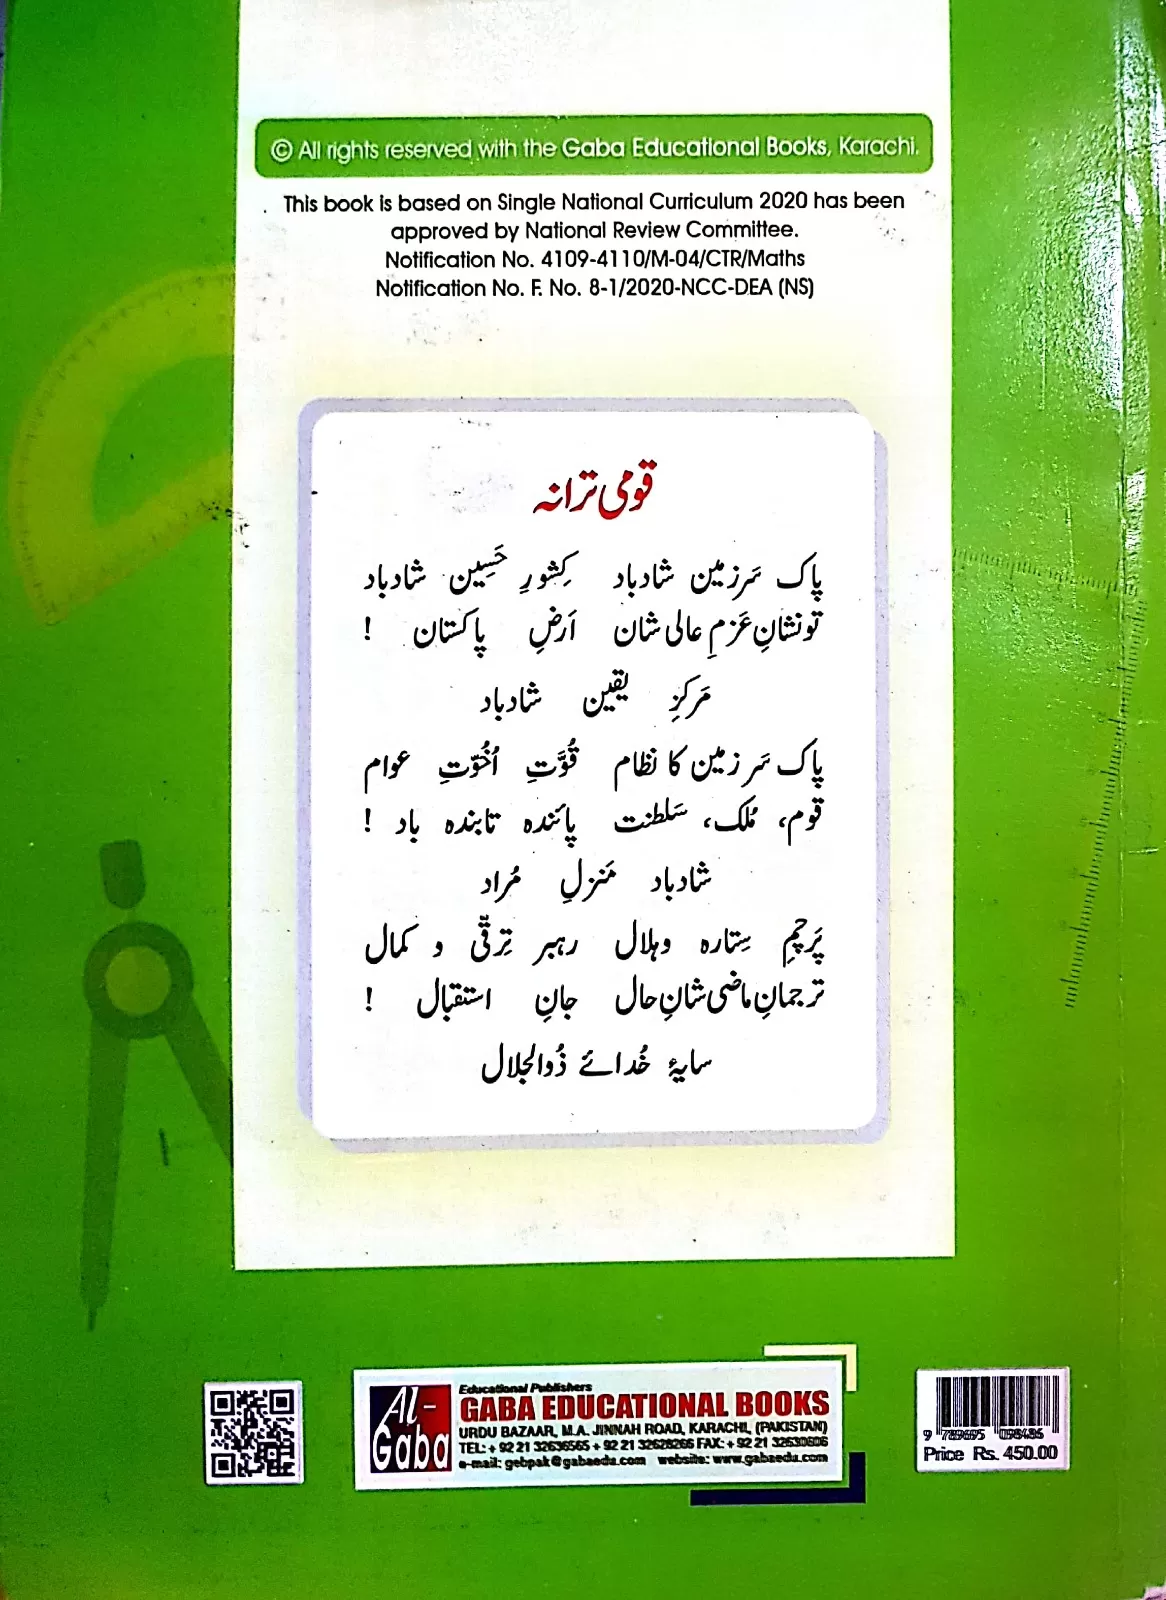 © All rights reserved with the Gaba Educational Books, Karachi.
This book is based on Single National Curriculum 2020 has been
approved by National Review Committee.
Notification No. 4109-4110/M-04/CTR/Maths
Notification No. F. No. 8-1/2020-NCC-DEA (NS)
قومی ترانہ
پاک سَرزمین شادباد کِشورِ حَسِین شادباد
تونشانِ عَزمِ عالی شان اَرضِ پاکستان !
مَرکزِ یقین شادباد
پاک سَرزمین کا نظام قُوَّتِ اُخُوّتِ عوام
قوم، مُلک، سَلطنت پائندہ تابندہ باد !
شادباد مَنزلِ مُراد
پَرچمِ سِتارہ وہلال رہبر تِرقّی و کمال
ترجمانِ ماضی شانِ حال جانِ استقبال !
سایۂ خُدائے ذُوالجلال
Al-Gaba
Educational Publishers
GABA EDUCATIONAL BOOKS
URDU BAZAAR, M.A. JINNAH ROAD, KARACHI, (PAKISTAN)
TEL: + 92 21 32636565 + 92 21 32628266 FAX: + 92 21 32630606
e-mail: gebpak@gabaedu.com website: www.gabaedu.com
9 789695 098486
Price Rs. 450.00